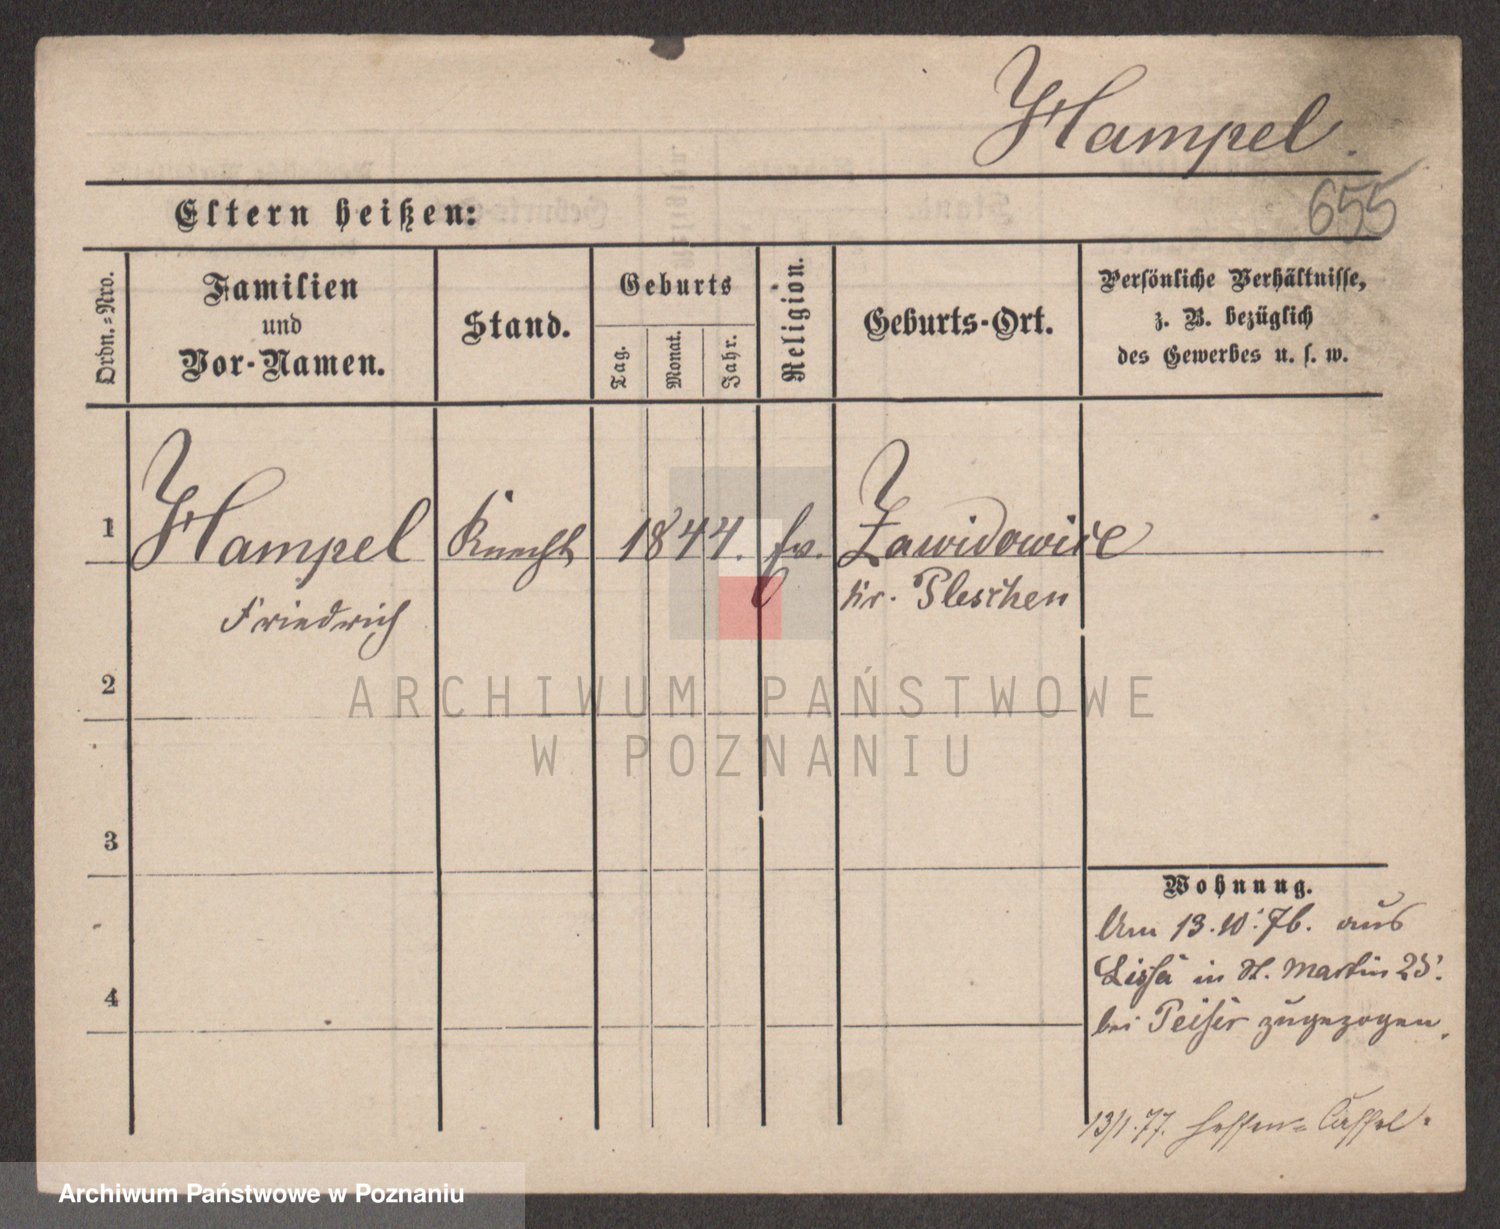 Hampel.
655
Eltern heißen:
Ordn.=Nro.
Familien
und
Vor-Namen.
Stand.
Geburts
Tag.
Monat.
Jahr.
Religion.
Geburts-Ort.
Persönliche Verhältnisse,
z. B. bezüglich
des Gewerbes u. s. w.
1 Hampel Knecht 1844. ev. Zawidowice
Friedrich Kr. Pleschen
2
3
4
Wohnung.
Am 13.10.76. aus
Lissa in St. Martin 25.
bei Peiser zugezogen.
13/1.77. Hessen-Cassel.
ARCHIWUM PAŃSTWOWE
W POZNANIU
Archiwum Państwowe w Poznaniu